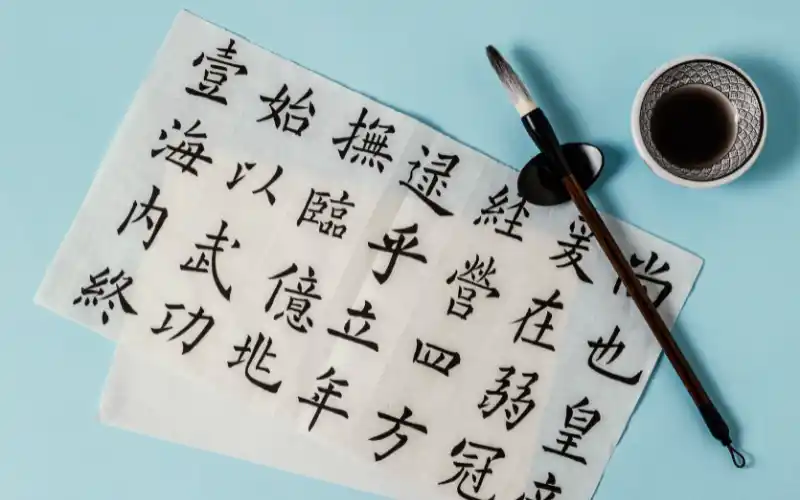 尚也皇
爰在弱冠
經營四方
逮乎立年
撫臨億兆
始以武功
壹海内終